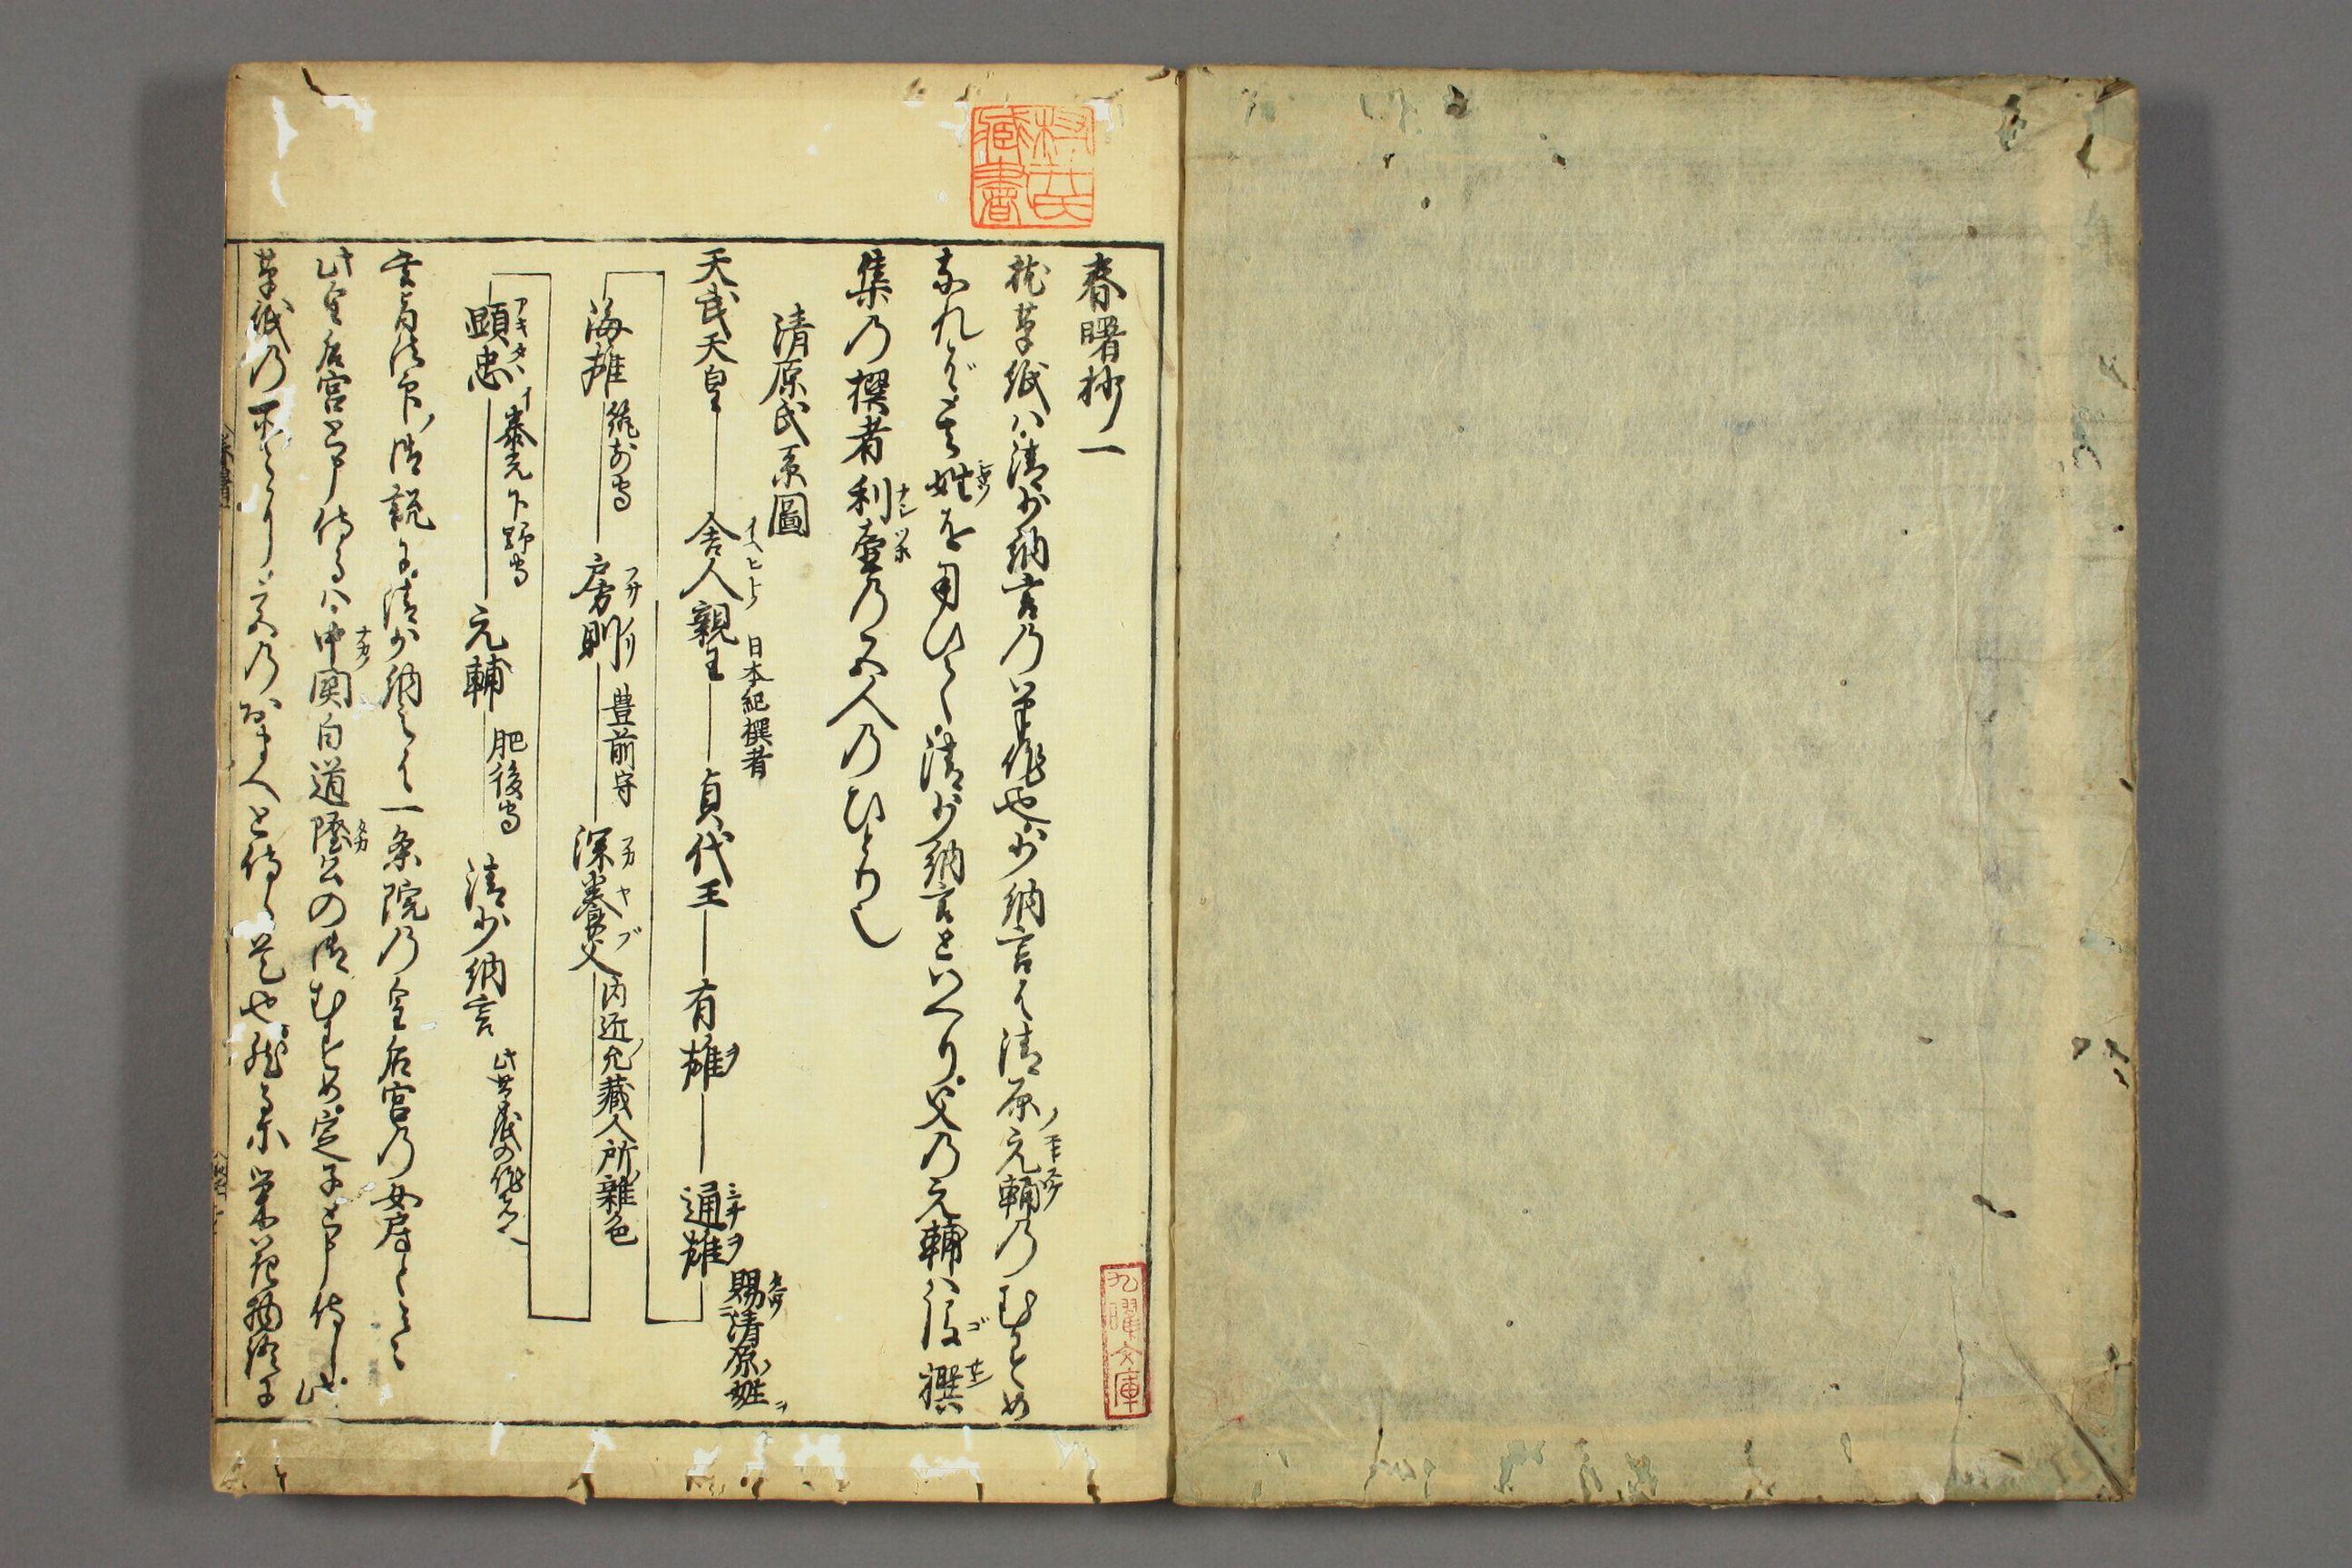 春曙抄一
枕草紙ハ清少納言乃筆作也少納言は清原ノ元輔乃むすめ
なれバ其姓を用ひて清少納言といへり父乃元輔ハ後撰
集乃撰者梨壷乃五人乃ひとり也
清原氏系圖
天武天皇 舎人親王 日本紀撰者 貞代王 有雄 通雄 賜清原姓
海雄 筑前守 房則 豊前守 深養父 内匠允蔵人所雑色
顕忠 泰光下野守 元輔 肥後守 清少納言 此草紙の作者
玄旨法印ノ御説に清少納言は一条院乃皇后宮乃女房
此皇后宮と申侍るハ中関白道隆公の御むすめ定子と申侍し此
草紙乃
春曙
九曜文庫